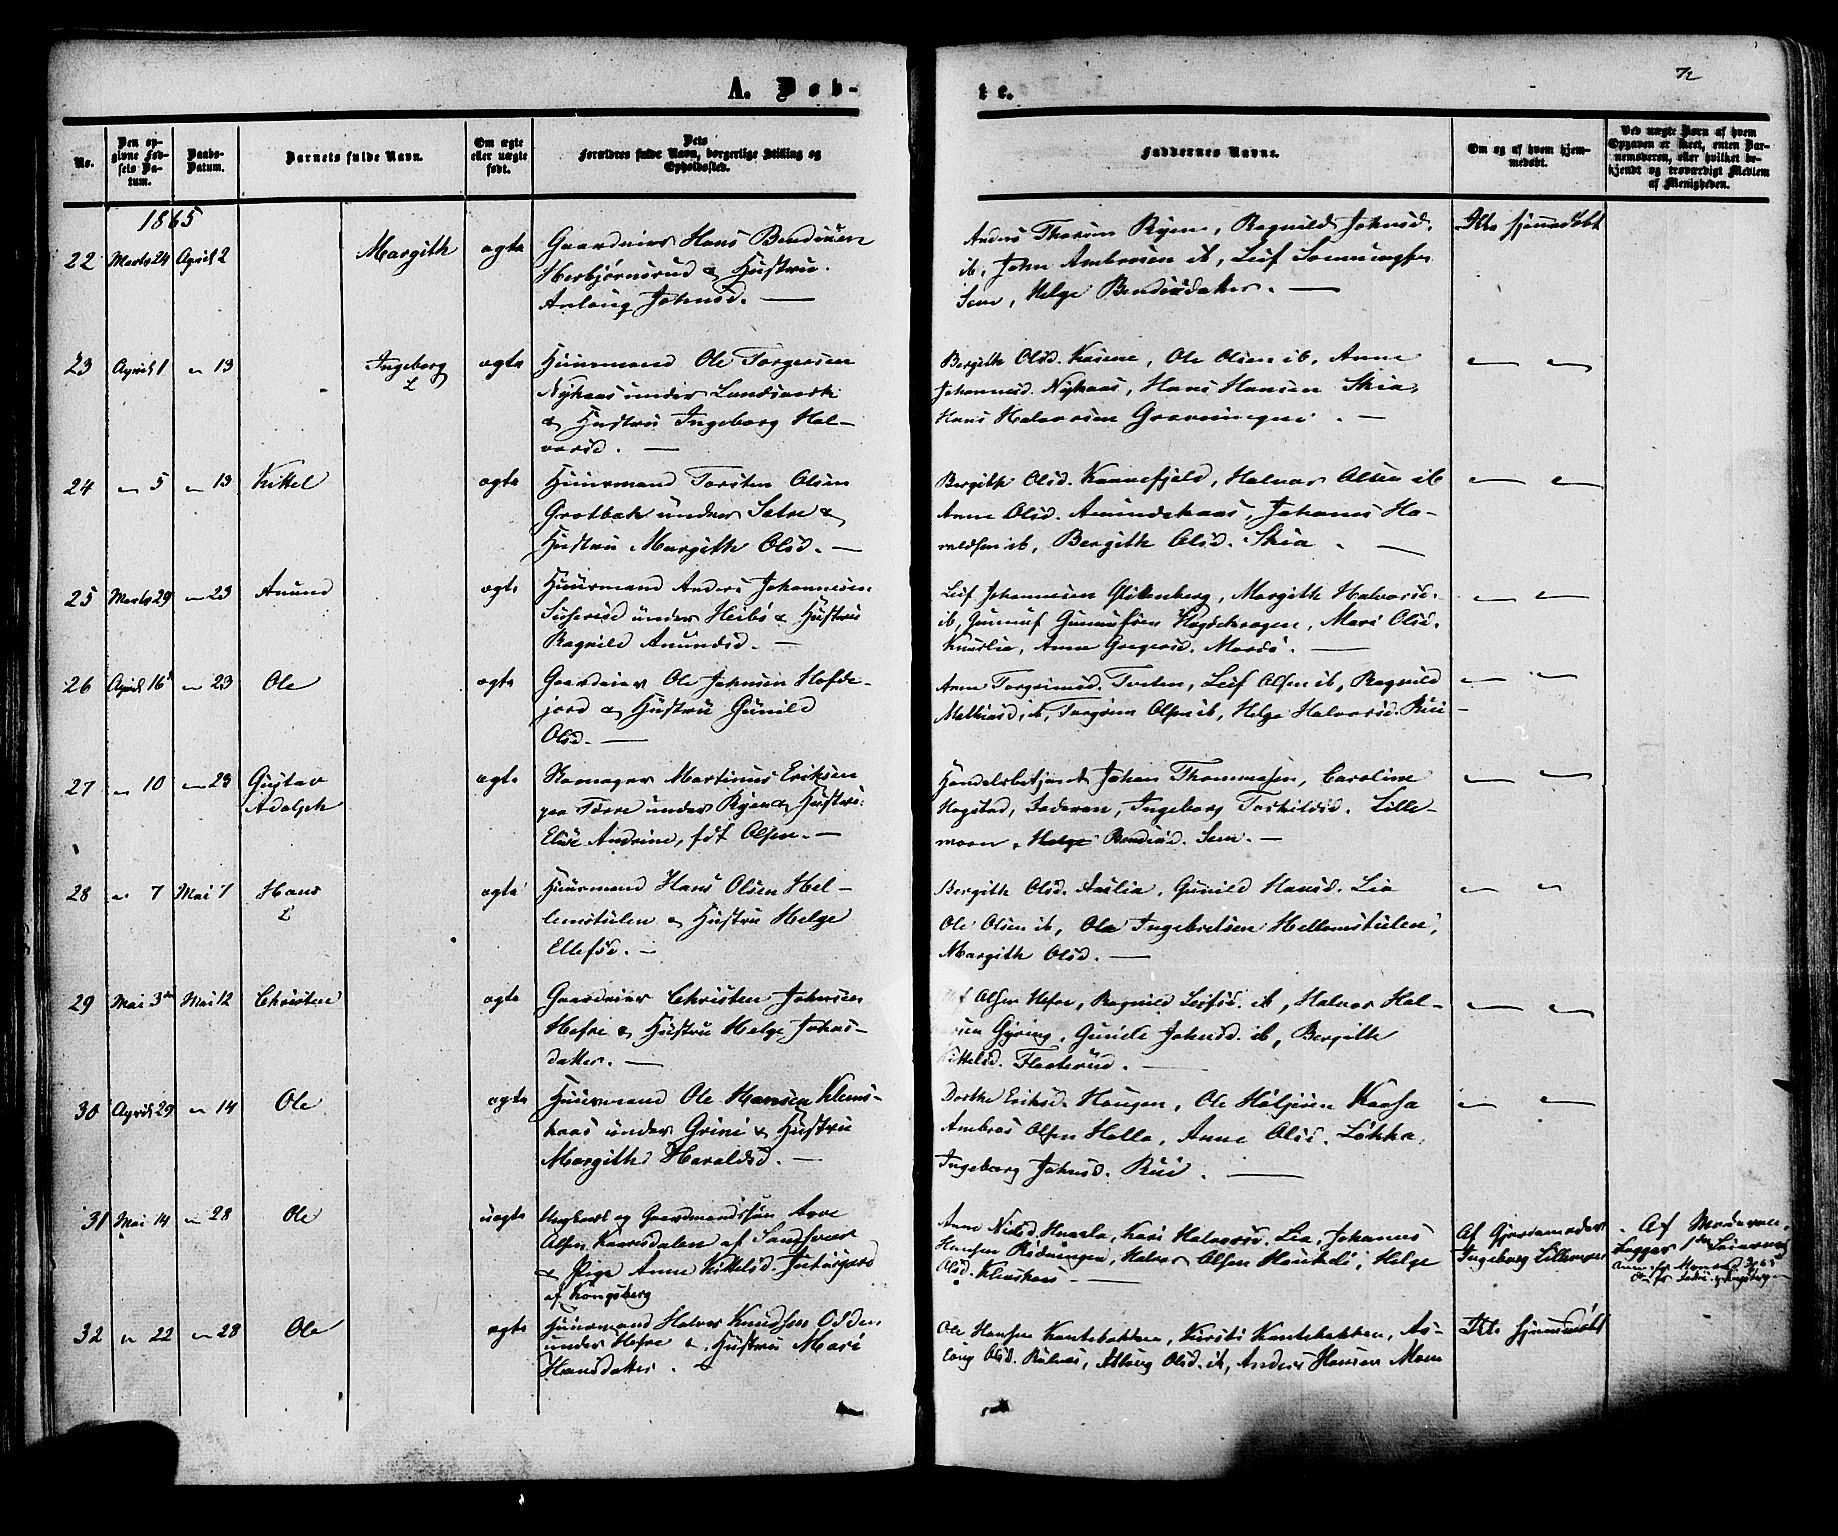 72
A. Døb-
te.
No.
Den op-
givne Fød-
sels Da-
tum.
Daabs-
Datum.
Barnets fulde Navn.
Om ægte
eller uægte
født.
Dets
Forældres fulde Navn, borgerlige Stilling og
Opholdssted.
Faddernes Navne.
Om og af hvem hjem-
medøbt.
Ved uægte Børn af hvem
Opgaven er skeet, enten Bar-
nemoderen, eller hvilket be-
kjendt og troværdigt Medlem
af Menigheden.
1865
22 Marts 24 April 2 Margith ægte
Gaardeier Hans Bendixen
Herbjørnsrud & Hustru
Anlaug Johnsd. —
Anders Thorsen Ryen, Ragnild Johnsd.
ib, John Ambrosen ib, Leif
Sem, Helge Bendixdatter. —
Ikke hjemmedøbt
23 April 1 " 13 Ingeborg ægte
Huusmand Ole Torgersen
Nykaas under Landsverk
& Hustru Ingeborg Hal-
vorsd. —
Bergith Olsd. Kasene, Ole Olsen ib, Anne
Johannesd. Nykaas, Hans Hansen Skia,
Hans Halvorsen Gravningen. —
" "
24 " 5 " 13 Kittel ægte
Huusmand Torsten Olsen
Grotbæk under Sætre &
Hustru Margith Olsd. —
Bergith Olsd. Kannefjeld, Halvor Olsen ib
Anne Olsd. Amundskaas, Johanes Ha-
raldsen ib, Bergith Olsd. Skia. —
" "
25 Marts 29 " 23 Anund ægte
Huusmand Anders Johannesen
under Heibø & Hustru
Ragnild Anundsd. —
Leif Johannesen Glitenberg, Margith Halvorsd.
ib, Gunnuf Gunnufsen Høgsethaugen, Mari Olsd.
Anne Gregersd. Moedø. —
" "
26 April 16 " 23 Ole ægte
Gaardeier Ole Johnsen Hofde-
jord & Hustru Gunild
Olsd. —
Anne Torgrimsd. Tveten, Leif Olsen ib, Ragnild
Mathiasd. ib, Torgrim Olsen ib, Helge Halvorsd. Rui —
" "
27 " 10 " 23 Gustav
Adolph ægte
Skomager Martinus Eriksen
paa Færre under Ryen & Hustru
Elise Andrine, født Olsen. —
Handelsbetjent Johan Thommesen, Caroline
Hogstad, Ingeborg Torkildsd. Lille-
moen, Helge Bendixd. Sem. —
" "
28 " 7 Mai 7 Hans ægte
Huusmand Hans Olsen Hel-
lemstulen & Hustru Helge
Ellefsd. —
Bergith Olsd. Aaslia, Gunild Hansd. Lia
Ole Olsen ib, Ole Ingebretsen Hellemstulen,
Margith Olsd. —
" "
29 Mai 3 Mai 12 Christen ægte
Gaardeier Christen Johnsen
Hofre & Hustru Helge Johns-
datter. —
Olsen Hefre, Ragnild Leifsd. ib, Halvor Hal-
Gjøring, Gunild Johnsd. ib, Bergith
Kittelsd. Flaaterud. —
" "
30 April 29 " 14 Ole ægte
Huusmand Ole Hansen Klems-
kaas under Grini & Hustru
Margith Haraldsd. —
Dorthe Eriksd. Haugen, Ole Holjesen Kaasa
Ambros Olsen Holla, Anne Olsd. Løkka,
Ingeborg Johnsd. Rui. —
" "
31 Mai 14 " 28 Ole uægte
Ungkarl og Gaardmandssøn Arve
Olsen Kaarsdalen af Sandsvær
& Pige Anne Kittelsd.
af Kongsberg
Anne Nilsd. Kari Halvorsd. Lia, Johannes
Hansen Rødningen, Halvor Olsen Helge
Olsd. Klemskaas —
Af Gjordemoder
Ingeborg Lillemoen
Af Moderen.
32 " 22 " 28 Ole ægte
Huusmand Halvor Knudsen Odden
under Hofre & Hustru Mari
Hansdatter. —
Ole Hansen Kantebakken, Kirsti Kantebakken, As-
laug Olsd. Aslaug Olsd. ib, Anders Hansen Moen
Ikke hjemmedøbt